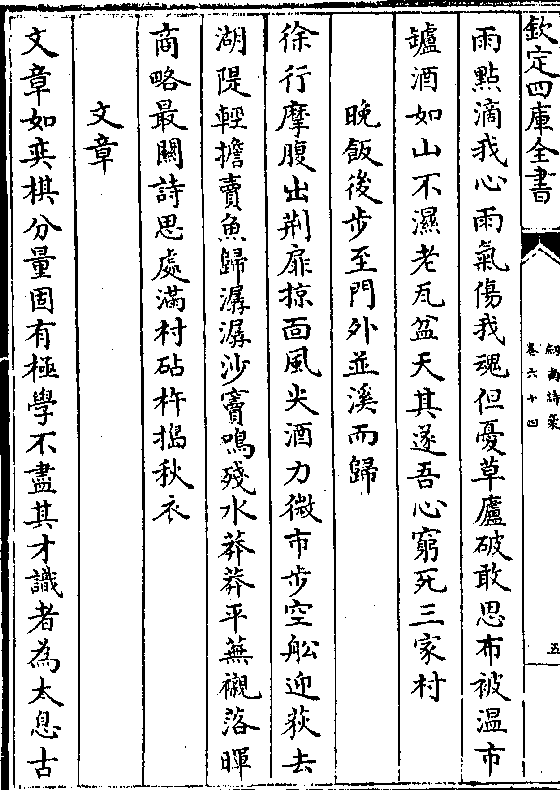 欽定四庫全書
劍南詩稾
卷六十四
五
雨點滴我心雨氣傷我魂但憂草廬破敢思布被温市
罏酒如山不濕老瓦盆天其遂吾心窮死三家村
晚飯後步至門外並溪而歸
徐行摩腹出荆扉掠面風尖酒力微市步空船迎荻去
湖隄輕擔賣魚歸潺潺沙竇鳴殘水莽莽平蕪襯落暉
商略最關詩思處滿村砧杵擣秋衣
文章
文章如奕棋分量固有極學不盡其才識者為太息古